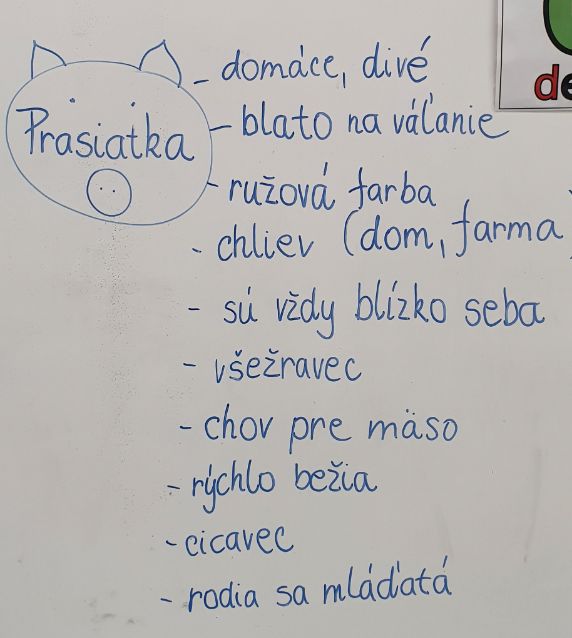 Prasiatka
- domáce, divé
- blato na váľanie
- ružová farba
- chliev (dom, farma)
- sú vždy blízko seba
- všežravec
- chov pre mäso
- rýchlo bežia
- cicavec
- rodia sa mláďatá
de